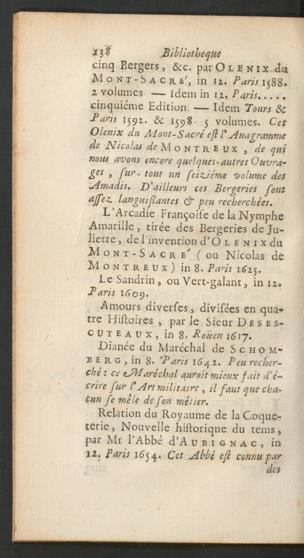 138 Bibliotheque
cinq Bergers, &c. par OLENIX du
MONT-SACRÉ, in 12. Paris 1588.
2 volumes — Idem in 12. Paris.....
cinquiéme Edition. — Idem Tours &
Paris 1592. & 1598. 5 volumes. Cet
Olenix du Mont-Sacré est l'Anagramme
de Nicolas de MONTREUX, de qui
nous avons encore quelques-autres Ouvra-
ges, sur-tout un seiziéme volume des
Amadis. D'ailleurs ces Bergeries sont
assez languissantes & peu recherchées.
L'Arcadie Françoise de la Nymphe
Amarille, tirée des Bergeries de Ju-
liette, de l'invention d'OLENIX du
MONT-SACRÉ (ou Nicolas de
MONTREUX) in 8. Paris 1625.
Le Sandrin, ou Vert-galant, in 12.
Paris 1609.
Amours diverses, divisées en qua-
tre Histoires, par le Sieur DESES-
CUTEAUX, in 8. Roüen 1617.
Dianée du Maréchal de SCHOM-
BERG, in 8. Paris 1642. Peu recher-
ché: ce Maréchal auroit mieux fait d'é-
crire sur l'Art militaire, il faut que cha-
cun se mêle de son métier.
Relation du Royaume de la Coque-
terie, Nouvelle historique du tems,
par Mr l'Abbé d'AUBIGNAC, in
12. Paris 1654. Cet Abbé est connu par
des